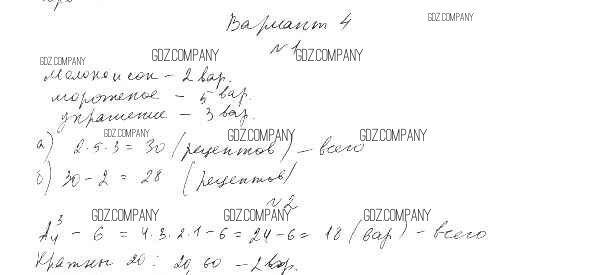 Вариант 4
GDZ.COMPANY
№1
GDZ.COMPANY GDZ.COMPANY GDZ.COMPANY
Молоко и сок - 2 вар.
мороженое - 5 вар.
украшение - 3 вар.
GDZ.COMPANY GDZ.COMPANY GDZ.COMPANY
а) 2·5·3 = 30 (рецептов) - всего
б) 30 - 2 = 28 (рецептов)
№2
GDZ.COMPANY GDZ.COMPANY GDZ.COMPANY
A₄³ - 6 = 4·3·2·1 - 6 = 24 - 6 = 18 (вар) - всего
Кратны 20: 20, 60 - 2 вар.